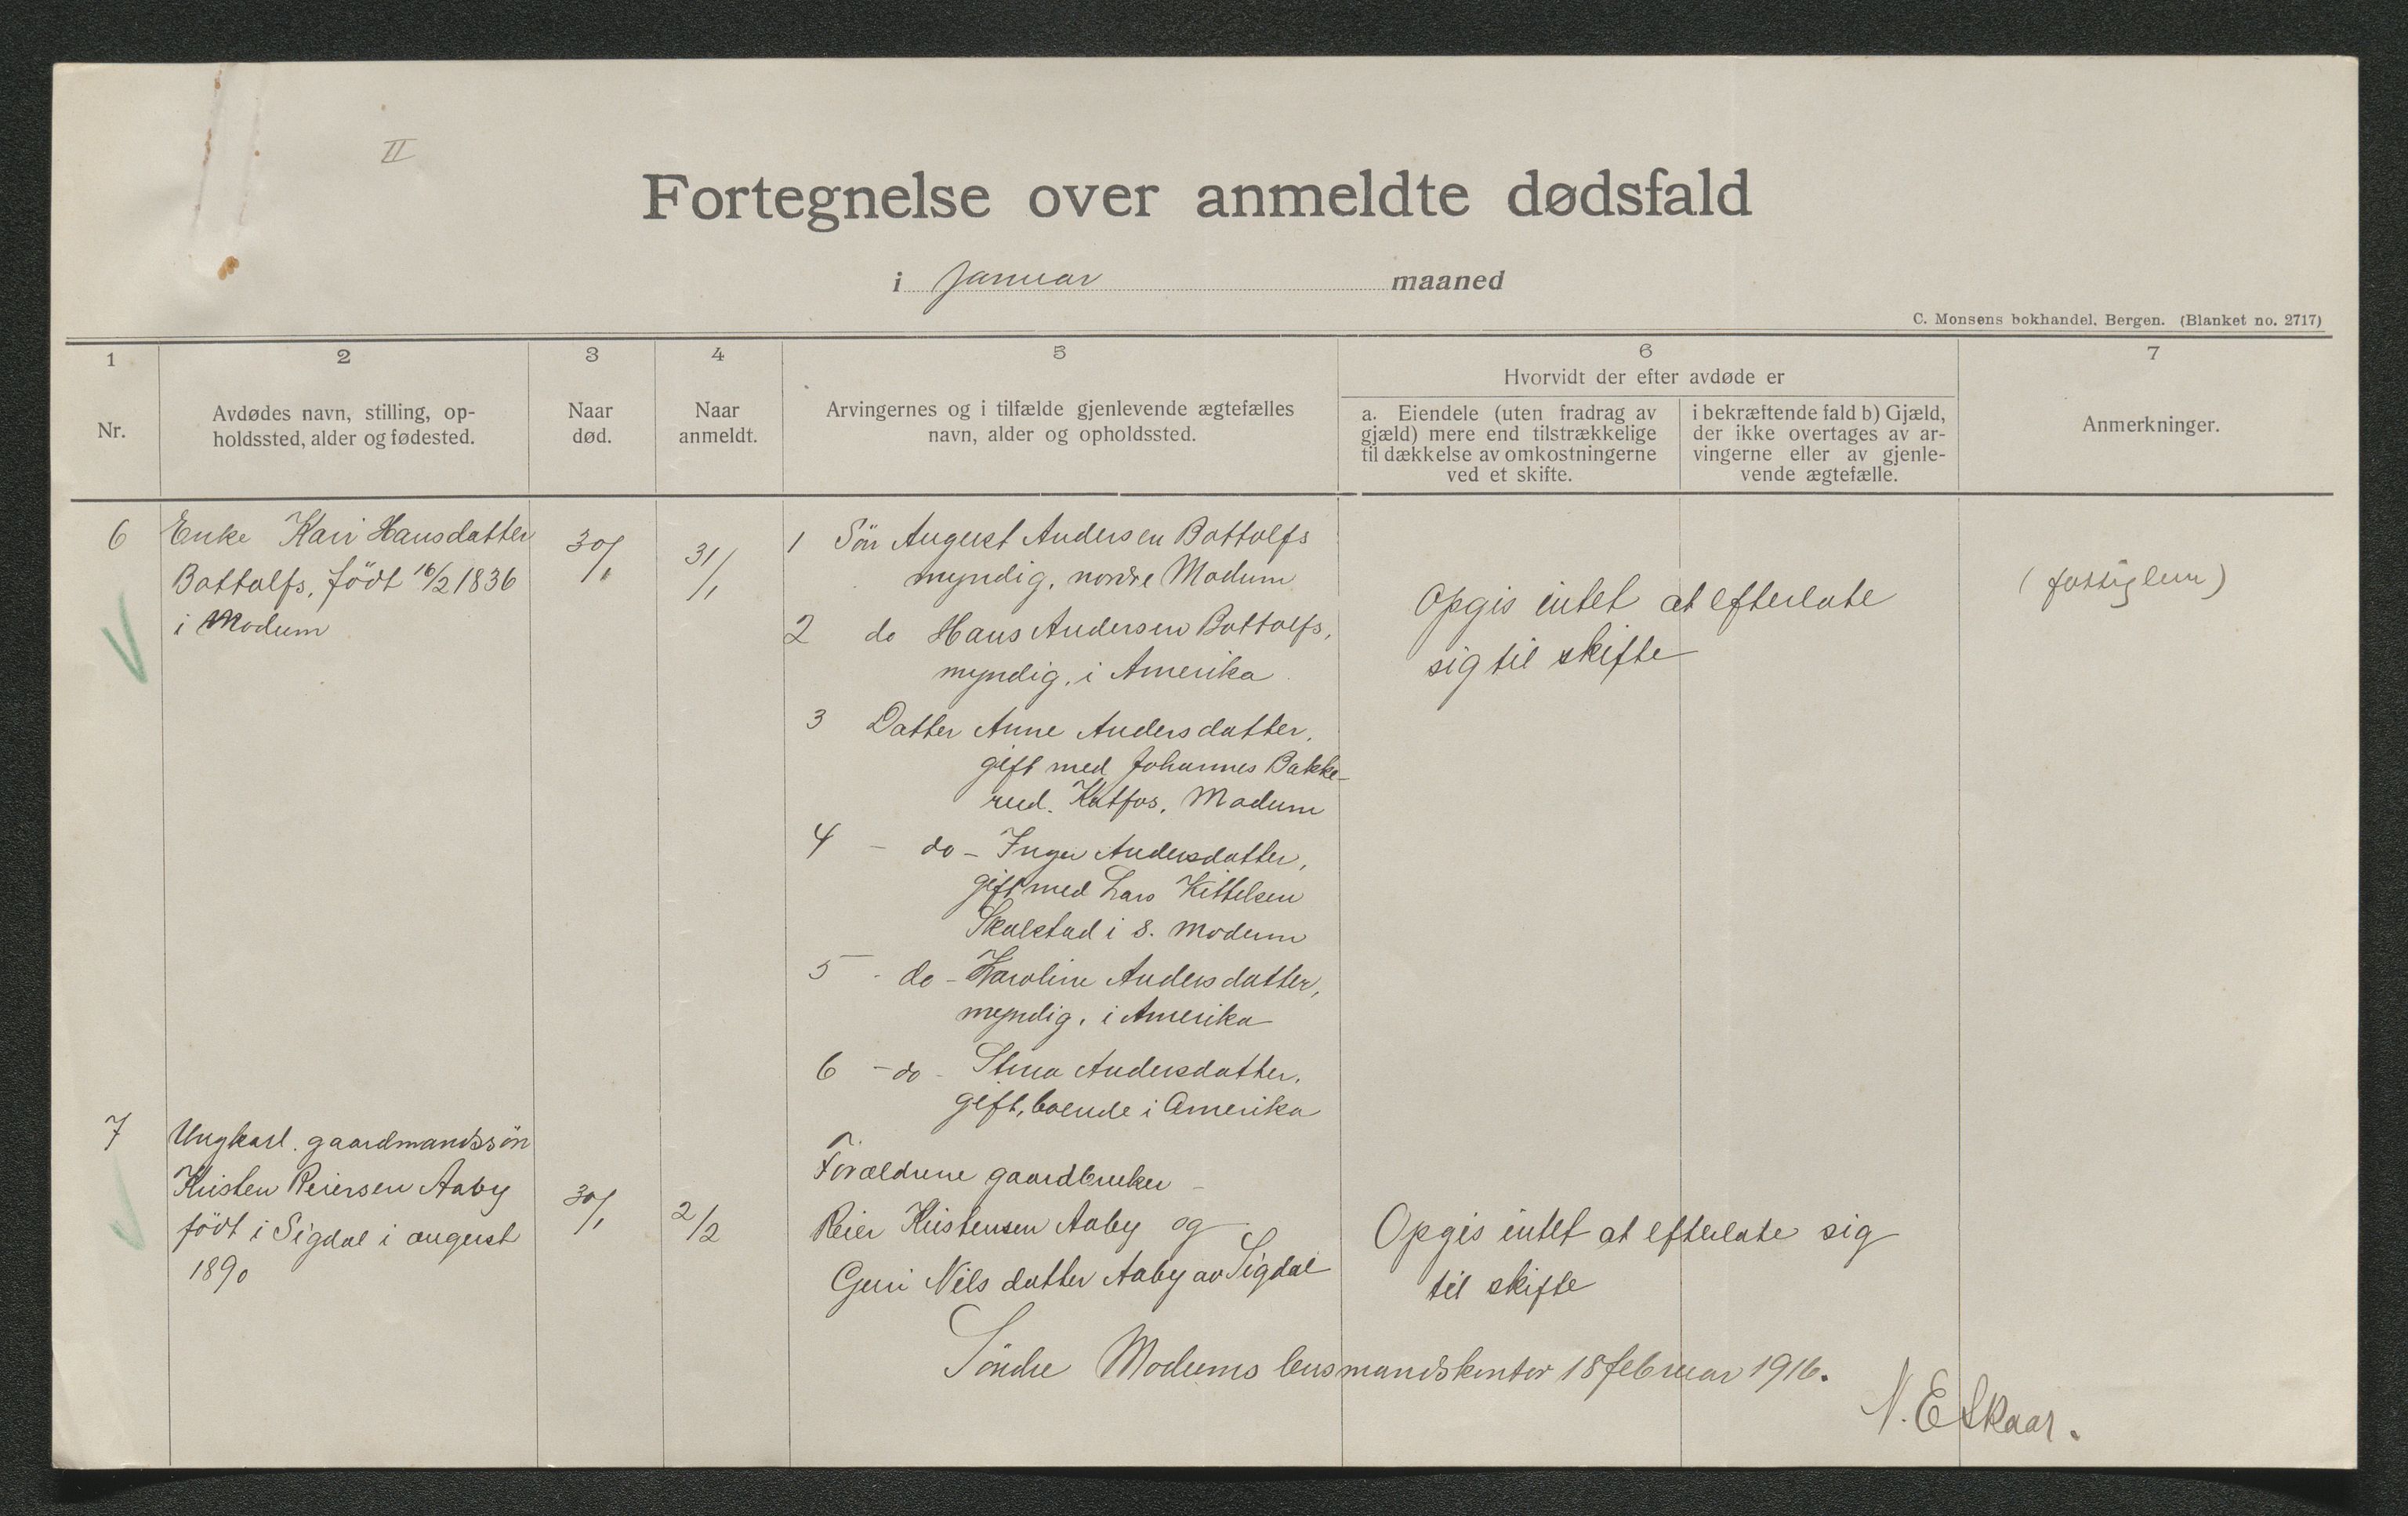 II
Fortegnelse over anmeldte dødsfald
i Januar maaned
C. Monsens bokhandel, Bergen. (Blanket no. 2717)
1
2
3
4
5
6
7
Nr.
Avdødes navn, stilling, op-
holdssted, alder og fødested.
Naar
død.
Naar
anmeldt.
Arvingernes og i tilfælde gjenlevende ægtefælles
navn, alder og opholdssted.
Hvorvidt der efter avdøde er
a. Eiendele (uten fradrag av
gjæld) mere end tilstrækkelige
til dækkelse av omkostningerne
ved et skifte.
i bekræftende fald b) Gjæld,
der ikke overtages av ar-
vingerne eller av gjenle-
vende ægtefælle.
Anmerkninger.
6
Enke Kari Hansdatter
Bottolfs, født 16/2 1836
i Modum
30/1
31/1
1 Sön August Andersen Bottolfs
myndig, nordre Modum
2 do Hans Andersen Bottolfs,
myndig, i Amerika
3 Datter Anne Andersdatter,
gift med Johannes Bakke-
rud. Katfos, Modum
4 - do - Inger Andersdatter,
gift med Lars Kittelsen
Skalstad i S. Modum
5 - do - Karoline Andersdatter,
myndig, i Amerika
6 - do - Stina Andersdatter,
gift, boende i Amerika
Opgis intet at efterlate
sig til skifte
(fattiglem)
7
Ungkarl. gaardmandssön
Kristen Reiersen Aaby
født i Sigdal i august
1890
30/1
2/2
Forældrene gaardbruker
Reier Kristensen Aaby og
Guri Nilsdatter Aaby av Sigdal
Opgis intet at efterlate sig
til skifte
Söndre Modums lensmandskontor 18 februar 1916.
N. E Skaar.